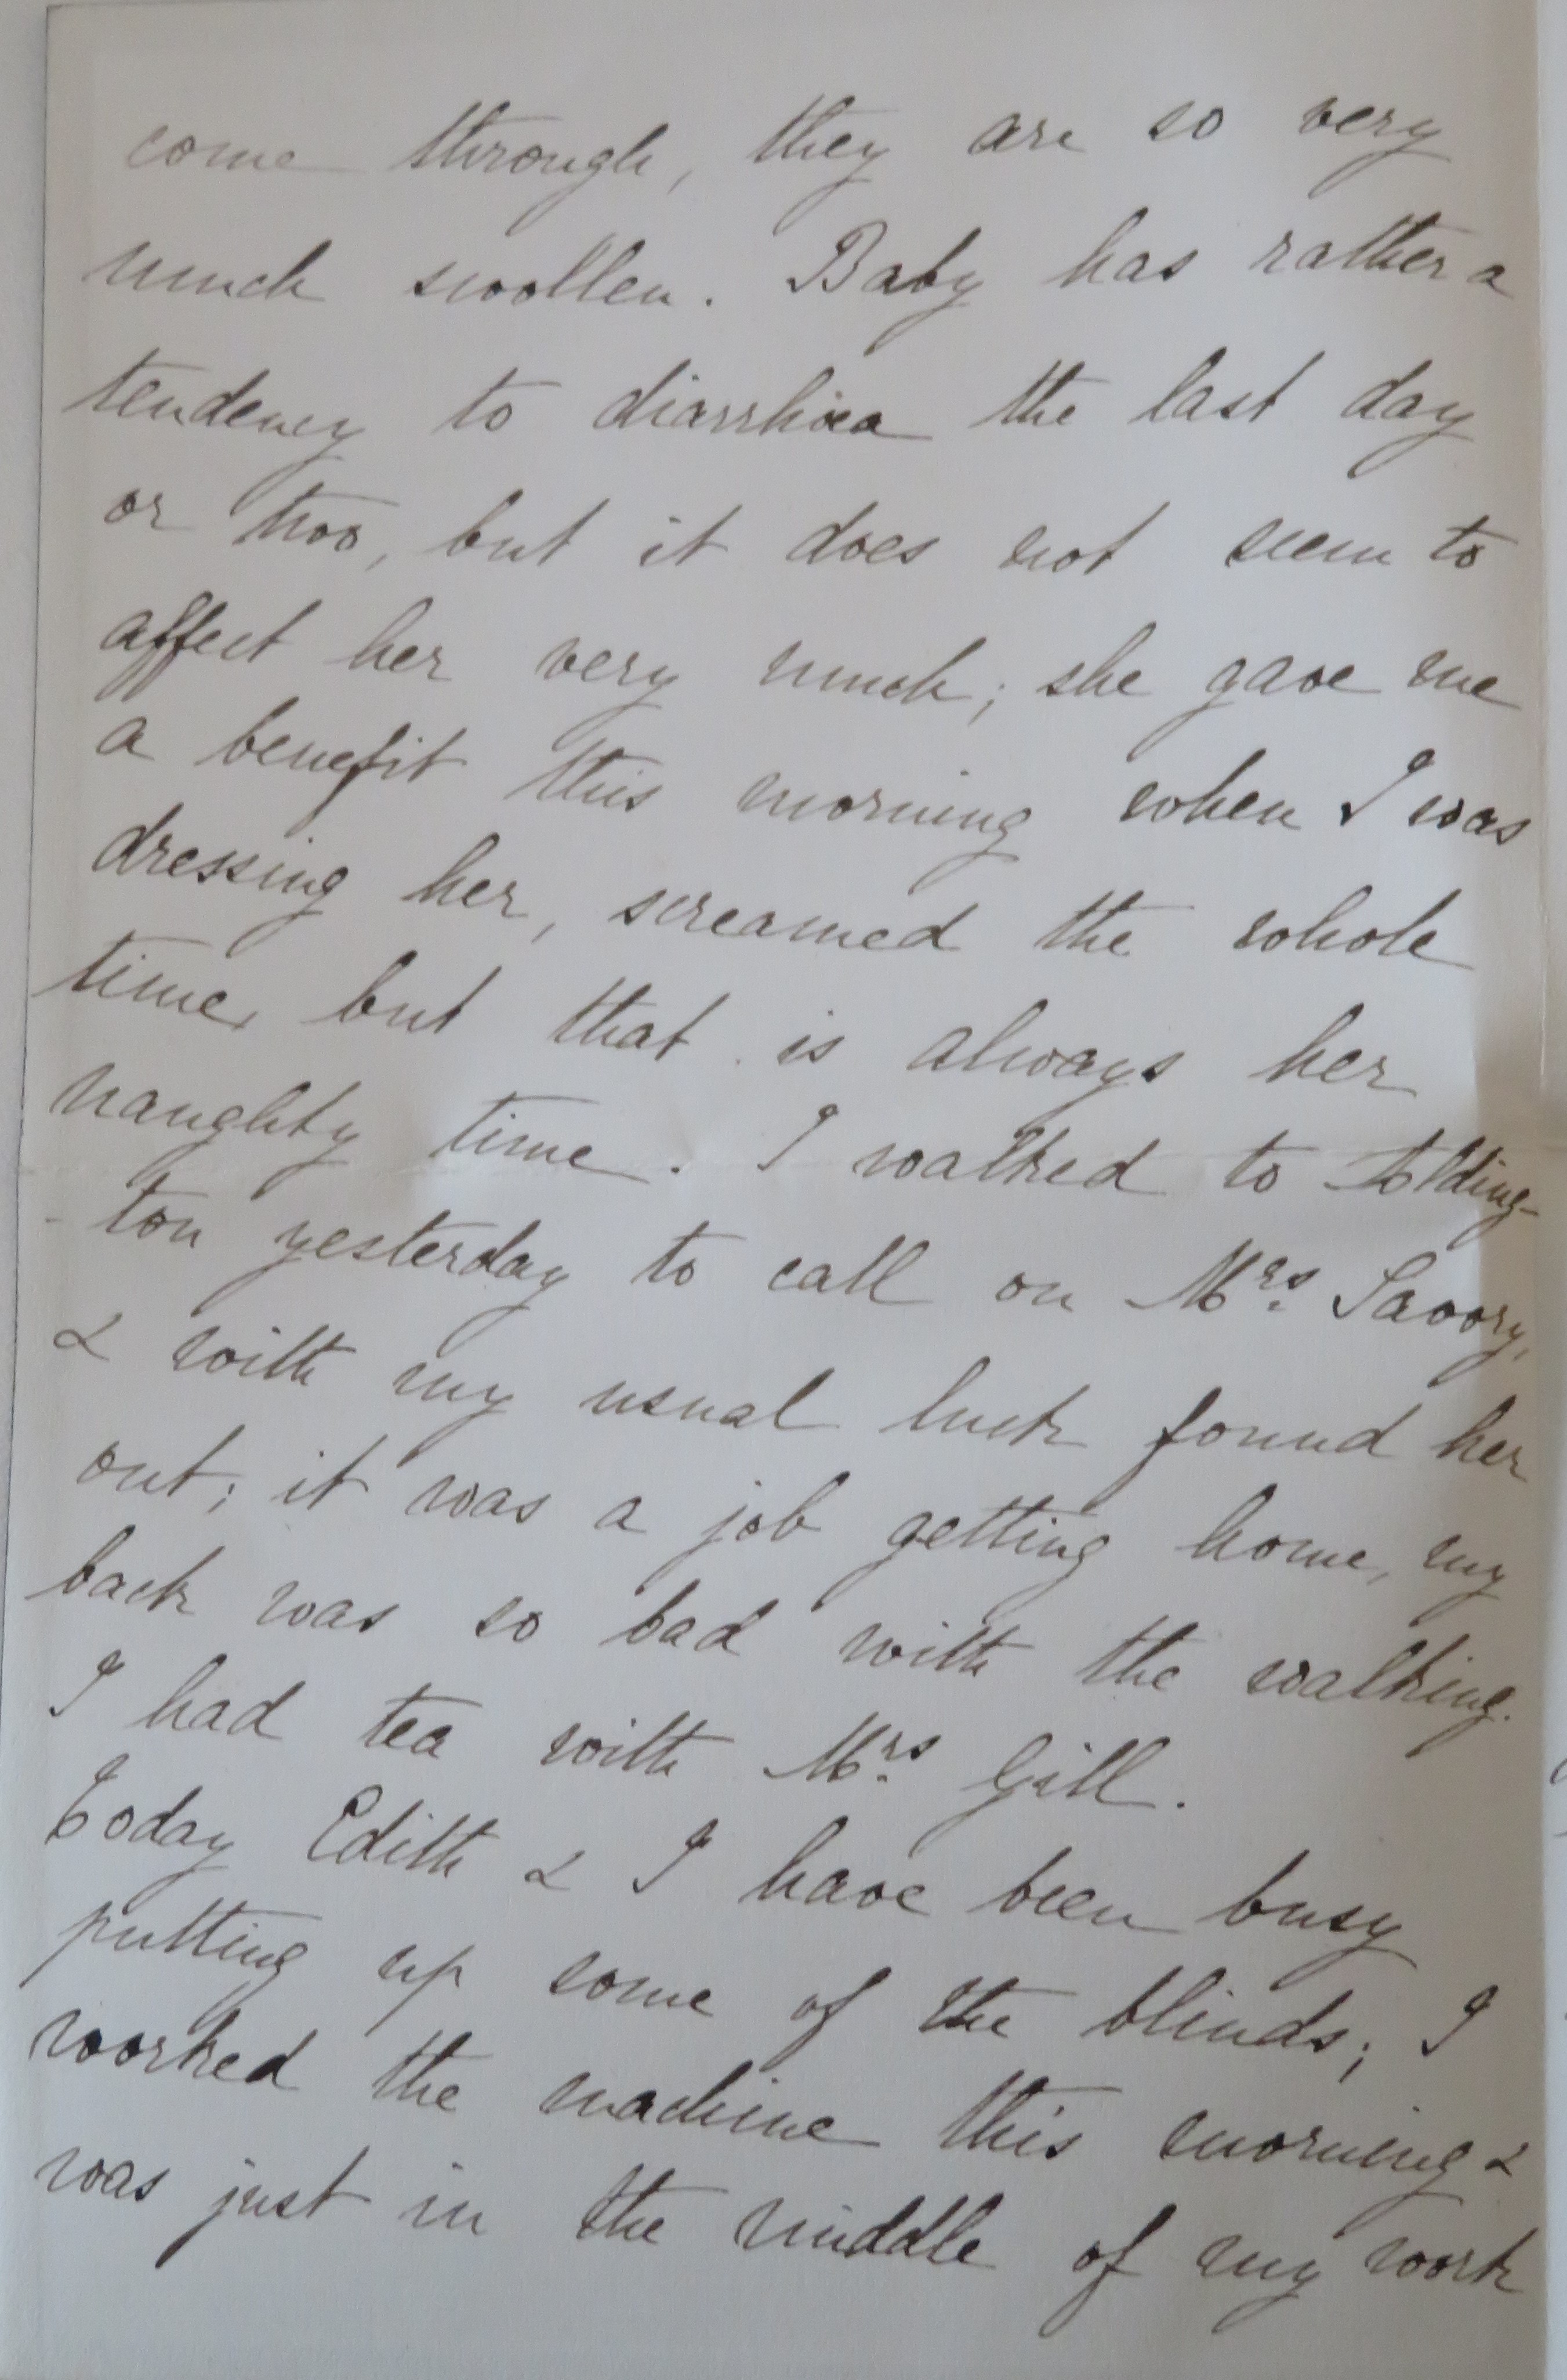 come through, they are so very
much swollen. Baby has rather a
tendency to diarrhoea the last day
or two, but it does not seem to
affect her very much; she gave me
a benefit this morning when I was
dressing her, screamed the whole
time, but that is always her
naughty time. I walked to
ton yesterday to call on Mrs. Savory,
& with my usual luck found her
out; it was a job getting home, my
back was so bad with the walking.
I had tea with Mrs. Gill.
Today Edith & I have been busy
putting up some of the blinds; I
worked the machine this morning &
was just in the middle of my work